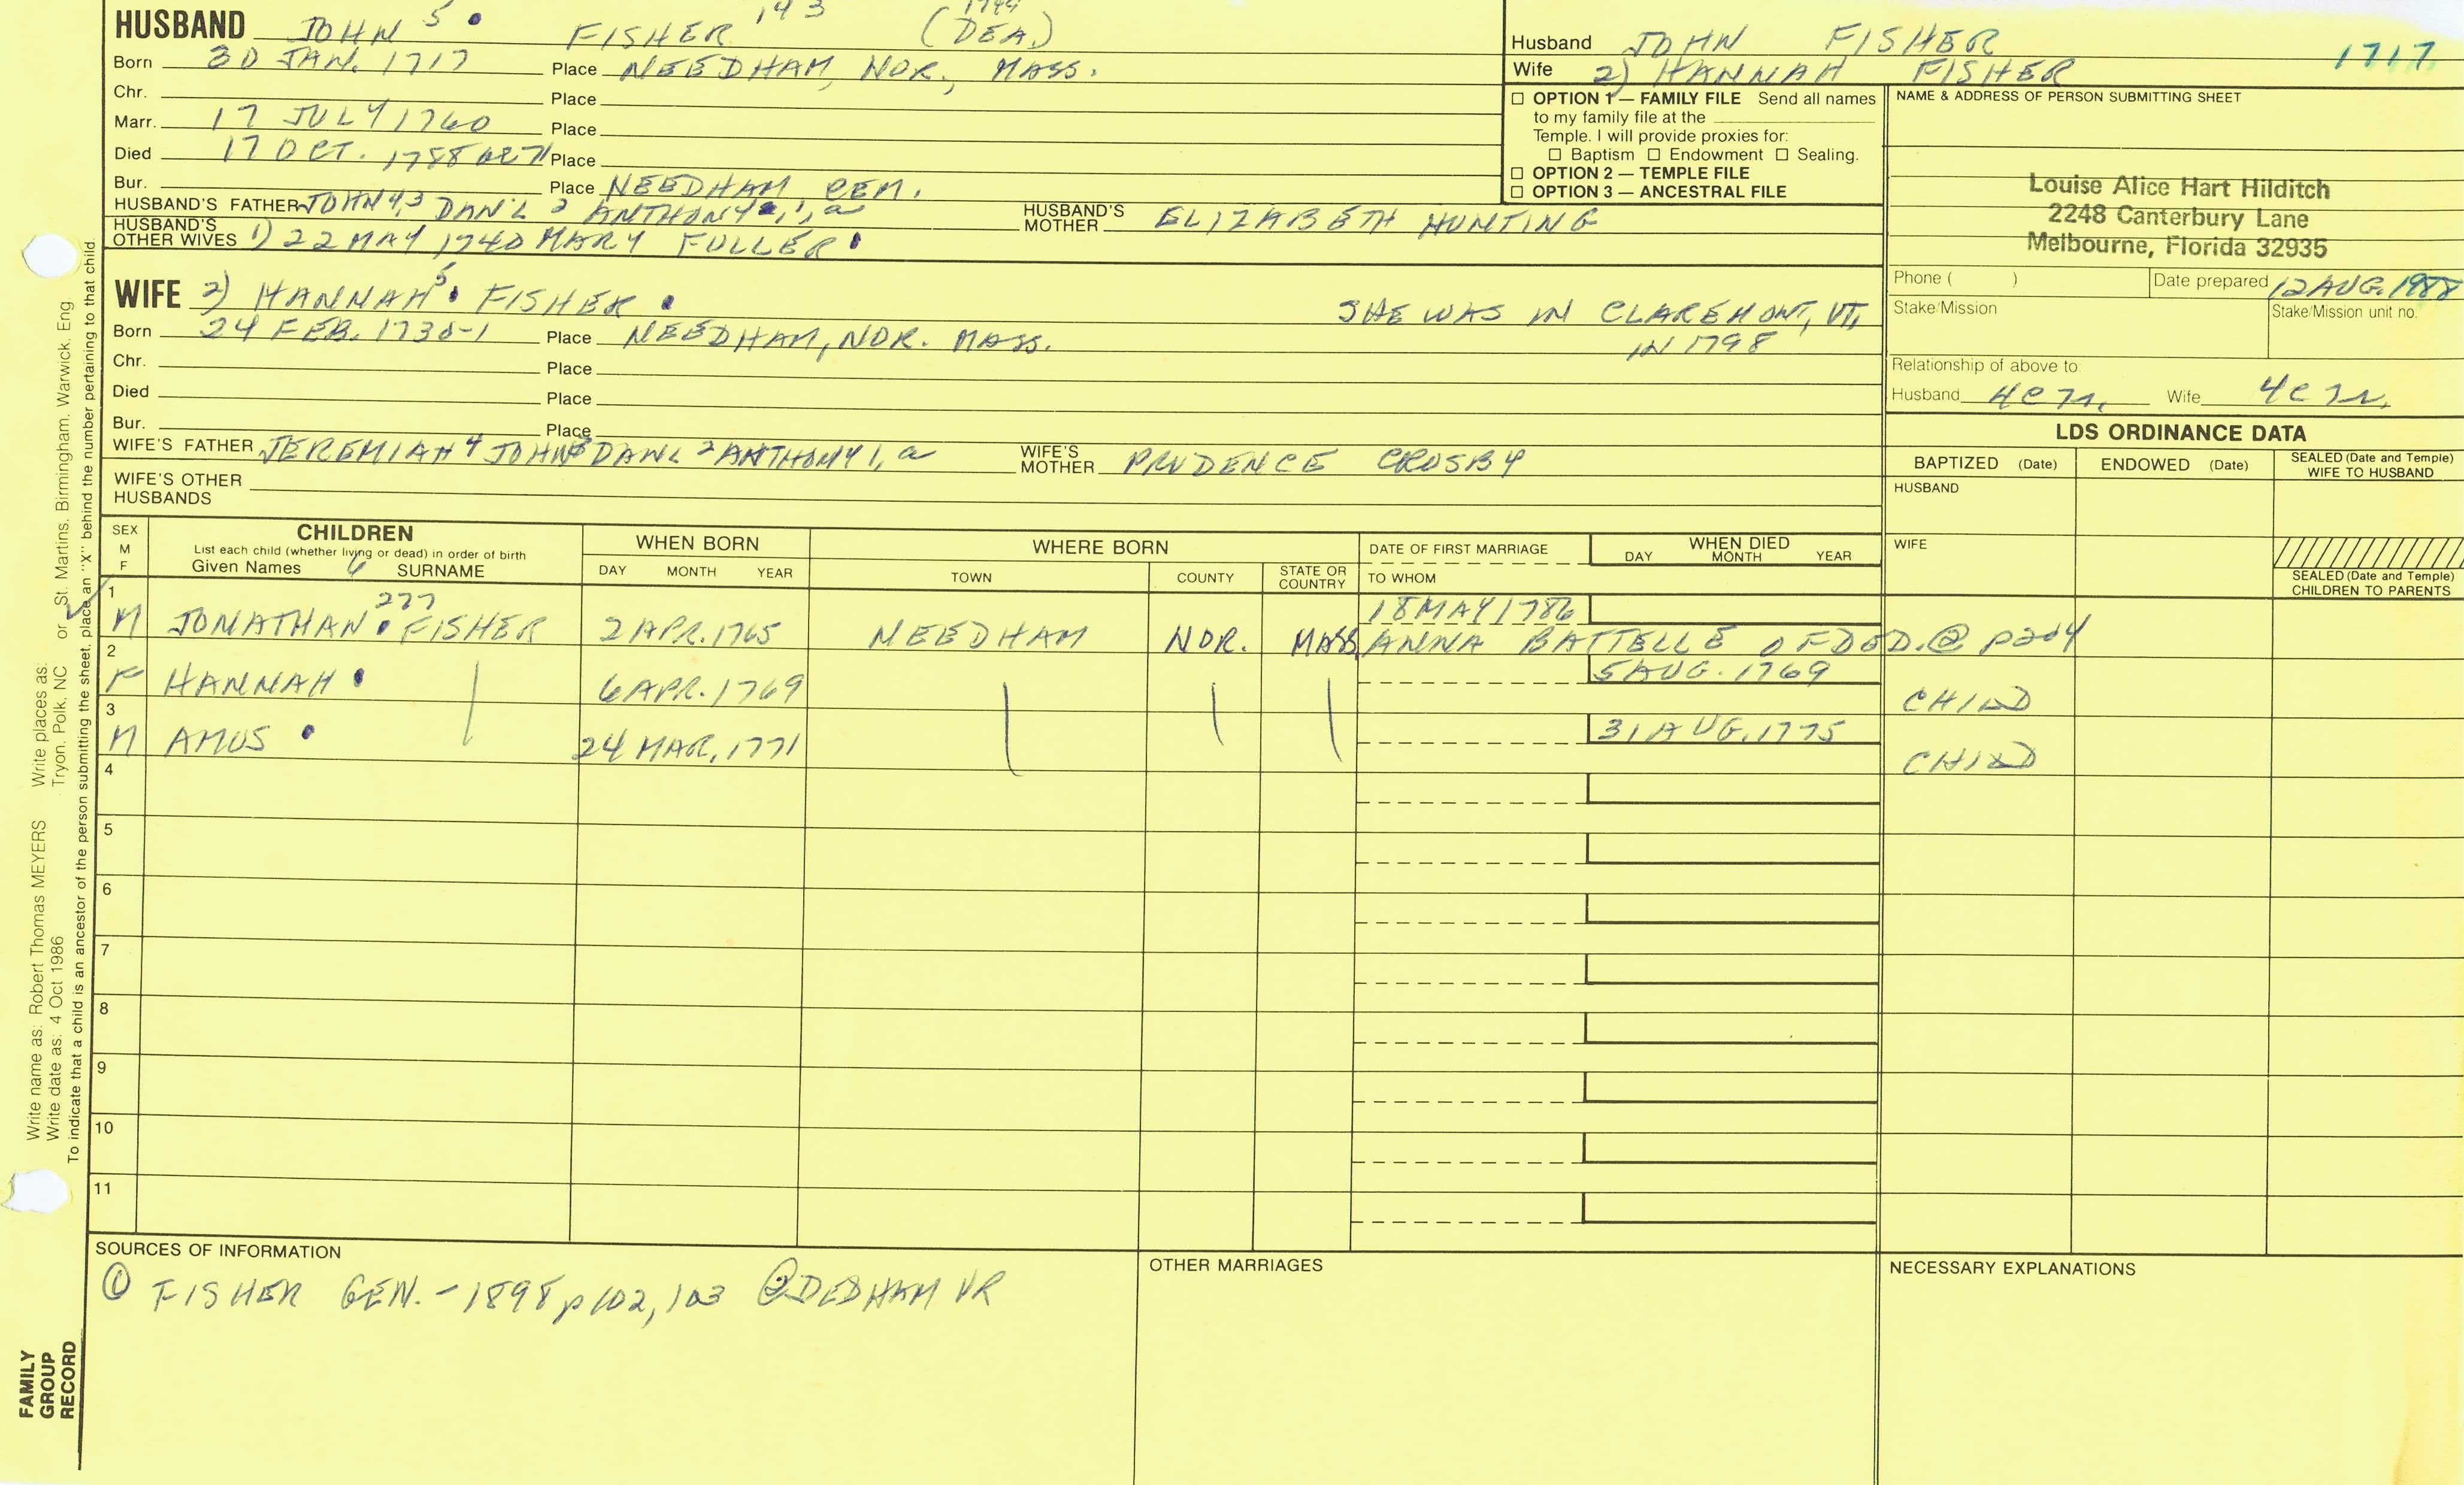 HUSBAND JOHN 5 FISHER 143 (DEA.) 1744
Born 30 JAN. 1717 Place NEEDHAM, NOR., MASS.
Chr. Place
Marr. 17 JULY 1760 Place
Died 17 OCT. 1788 Place
Bur. Place NEEDHAM CEM.
HUSBAND'S FATHER JOHN 4,3 DAN'L 2 ANTHONY 1, a HUSBAND'S MOTHER ELIZABETH HUNTING
HUSBAND'S OTHER WIVES 1) 22 MAY 1740 MARY FULLER
WIFE 2) HANNAH 5 FISHER
SHE WAS IN CLAREMONT, VT,
IN 1798
Born 24 FEB. 1730-1 Place NEEDHAM, NOR. MASS.
Chr. Place
Died Place
Bur. Place
WIFE'S FATHER JEREMIAH 4 JOHN 3 DANL 2 ANTHONY 1, a WIFE'S MOTHER PRUDENCE CROSBY
WIFE'S OTHER HUSBANDS
Husband JOHN FISHER 1717
Wife 2) HANNAH FISHER
☐ OPTION 1 — FAMILY FILE Send all names
to my family file at the
Temple. I will provide proxies for:
☐ Baptism ☐ Endowment ☐ Sealing.
☐ OPTION 2 — TEMPLE FILE
☐ OPTION 3 — ANCESTRAL FILE
NAME & ADDRESS OF PERSON SUBMITTING SHEET
Louise Alice Hart Hilditch
2248 Canterbury Lane
Melbourne, Florida 32935
Phone ( ) Date prepared 12 AUG. 1988
Stake/Mission Stake/Mission unit no.
Relationship of above to
Husband Wife
LDS ORDINANCE DATA
BAPTIZED (Date) ENDOWED (Date) SEALED (Date and Temple) WIFE TO HUSBAND
HUSBAND
WIFE
SEALED (Date and Temple)
CHILDREN TO PARENTS
SEX M F
CHILDREN
List each child (whether living or dead) in order of birth
Given Names 6 SURNAME
WHEN BORN
DAY MONTH YEAR
WHERE BORN
TOWN COUNTY STATE OR COUNTRY
DATE OF FIRST MARRIAGE
TO WHOM
WHEN DIED
DAY MONTH YEAR
1 M JONATHAN 277 FISHER 2 APR. 1765 NEEDHAM NOR. MASS 18 MAY 1786
ANNA BATTELLE OF DED. @ p204
2 F HANNAH 6 APR. 1769 5 AUG. 1769 CHILD
3 M AMOS 24 MAR. 1771 31 AUG. 1775 CHILD
4
5
6
7
8
9
10
11
SOURCES OF INFORMATION
① FISHER GEN. - 1898 p 102, 103 ② DEDHAM VR
OTHER MARRIAGES
NECESSARY EXPLANATIONS
Write name as: Robert Thomas MEYERS Write places as:
Write date as: 4 Oct 1986 Tryon, Polk, NC or St. Martins, Birmingham, Warwick, Eng
To indicate that a child is an ancestor of the person submitting the sheet, place an "X" behind the number pertaining to that child.
FAMILY
GROUP
RECORD